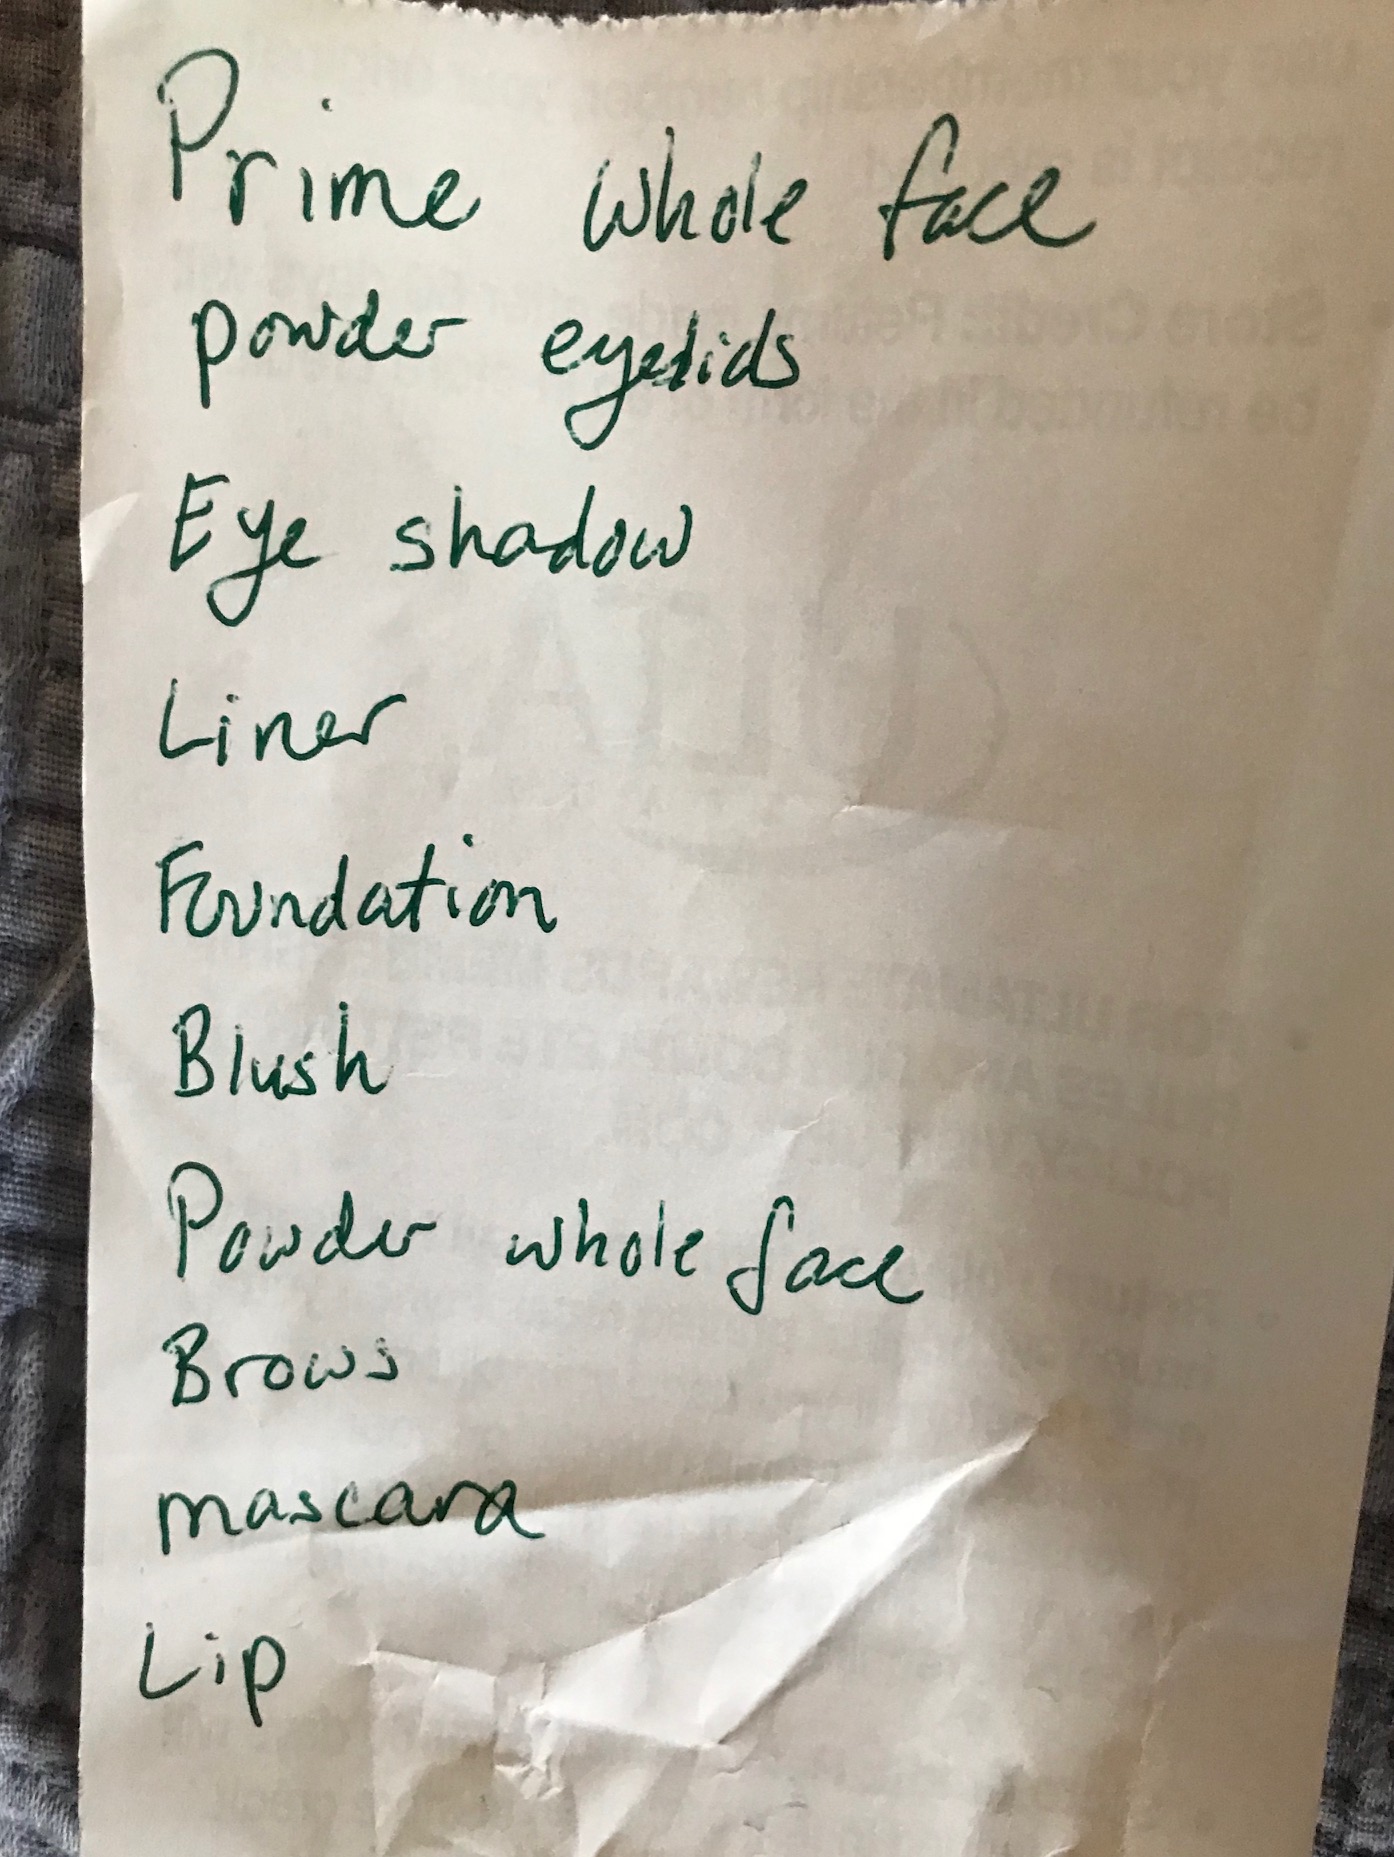 Prime whole face
powder eyelids
Eye shadow
Liner
Foundation
Blush
Powder whole face
Brows
mascara
Lip